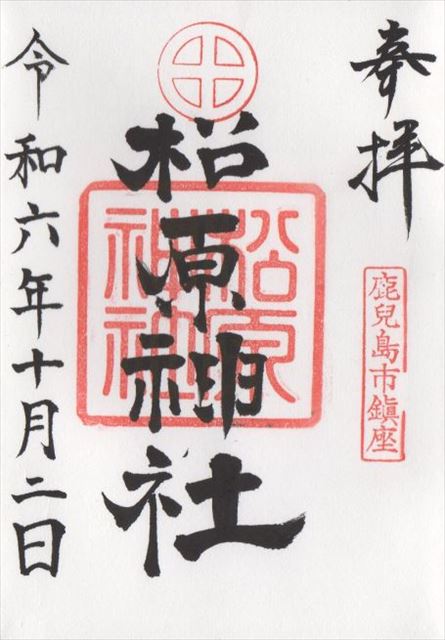 奉拝
鹿兒島市鎭座
松原神社
松原神社
令和六年十月二日